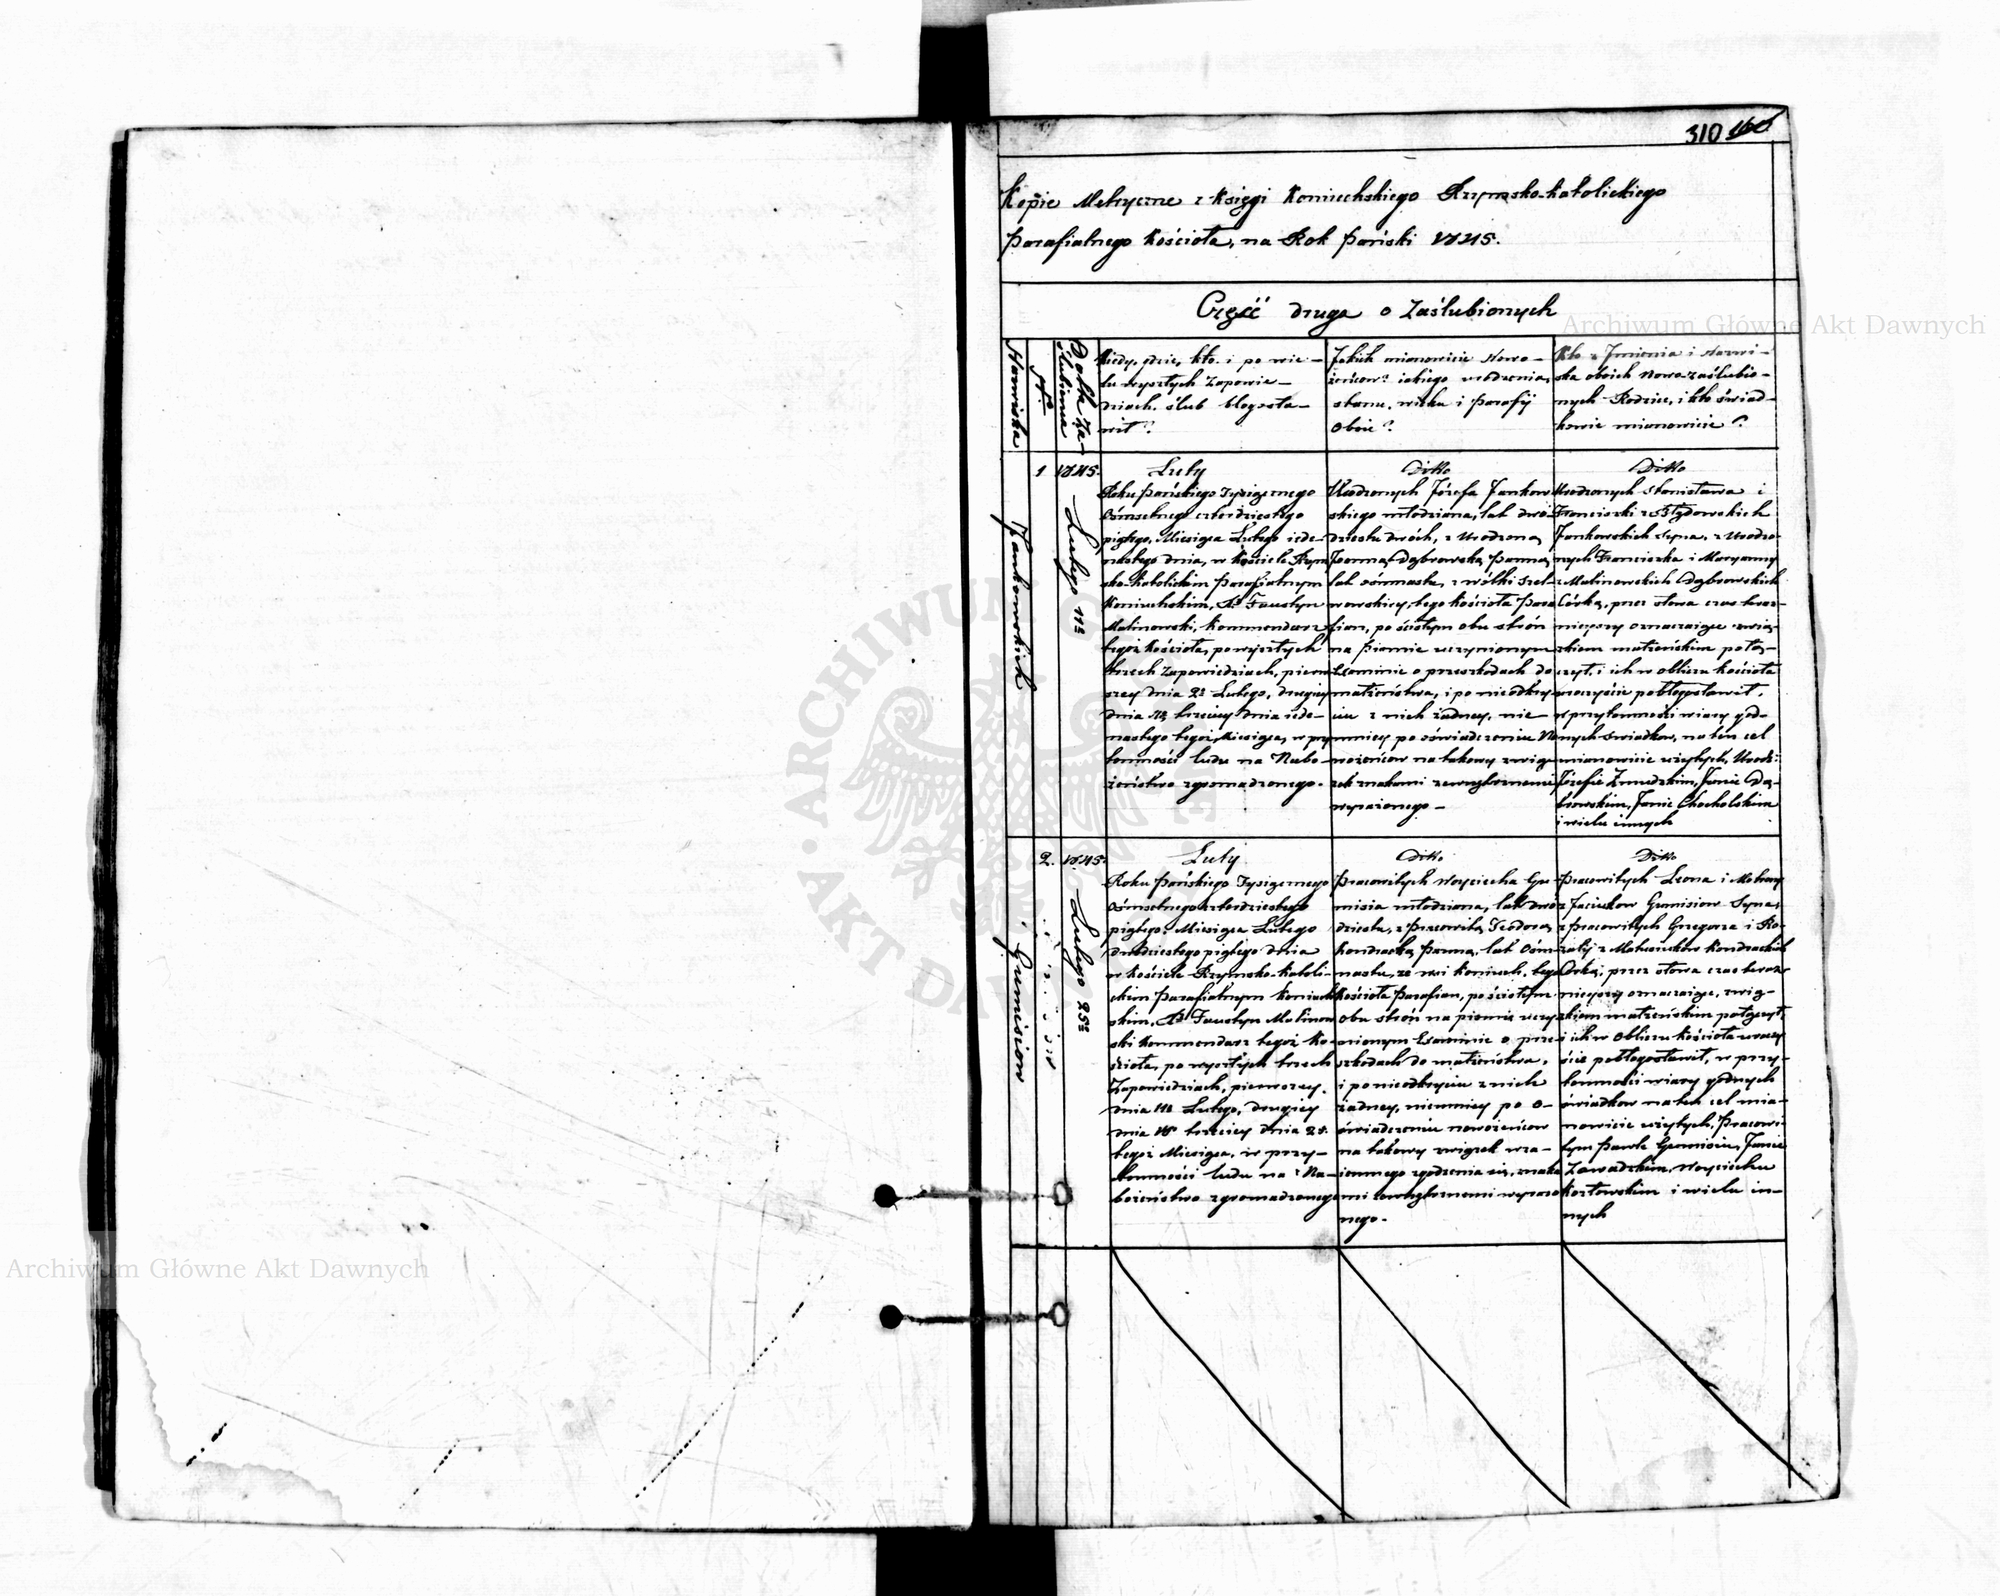 310 160
Kopie Metryczne z Księgi Koniuchskiego Rzymsko-Katolickiego
Parafialnego Kościoła, na Rok Pański 1845.
Część druga o Zaślubionych
Archiwum Główne Akt Dawnych
Nazwiska
No
Doba Za-
ślubienia
Kiedy, gdzie, kto. i po wie-
lu wyszłych Zapowie-
dziach. ślub błogosła-
wił?
Jakich mianowicie Nowo-
żeńcow? iakiego urodzenia,
stanu. wieku i Parafij
Oboie?
Kto z Imienia i Nazwi-
ska oboich Nowo-zaślubio-
nych Rodzice, i kto świad-
kowie mianowicie?
Jankowskich
1
1845.
Lutego 11
Luty
Roku Pańskiego Tysiącznego
Ośmsetnego czterdziestego
piątego, Miesiąca Lutego iede-
nastego dnia, w Kościele Rzym
sko-Katolickim Parafialnym
Koniuchskim, X. Faustyn
Malinowski, Kommendarz
tegoż Kościoła, po wyszłych
trzech Zapowiedziach, pierw
szey dnia 2 Lutego, drugiey
dnia trzeciey dnia iede-
nastego tegoż Miesiąca, w przy
tomności ludu na Nabo-
żeństwo zgromadzonego.
Ditto
Urodzonych Józefa Jankow
skiego młodziana, lat dwó
dziestu dwóch, z Urodzoną
Joanną Dąbrowską Panną,
lat ośmnastu, z Wólki Szel-
wowskiey, tego Kościoła Para
fian, po ścisłym obu strón
na Piśmie uczynionym
Examinie o przeszkodach do
małżeństwa, i po nieodkry
ciu z nich żadney, nie-
mniey po oświadczeniu No
wożeńcow na takowy zwią
zek znakami zewnętrznemi
wyrażonego-
Ditto
Urodzonych Stanisława i
Franciszki z
Jankowskich Syna, z Urodzo
nych Franciszka i Maryanny
z Malinowskich Dąbrowskich
Córką, przez słowa czas teraz-
nieyszy oznaczaiące związ-
kiem małżeńskim połą-
czył, i ich w obliczu Kościoła
uroczyście pobłogosławił,
w przytomności wiary god-
nych świadkow, na ten cel
mianowicie użytych, Urodz:
Józefie Żmudzkim, Janie Dą-
browskim, Janie Chocholskim
i wielu innych
Gumisiow
2.
1845.
Lutego 25
Luty
Roku Pańskiego Tysiącznego
Ośmsetnego czterdziestego
piątego. Miesiąca Lutego
dwudziestego piątego dnia
w Kościele Rzymsko-Katoli-
ckim Parafialnym Koniuch
skim, X. Faustyn Malinow
ski Kommendarz tegoż Ko-
ścioła, po wyszłych trzech
Zapowiedziach, pierwszey.
dnia Lutego, drugiey
dnia 18 trzeciey dnia 25.
tegoż Miesiąca, w przy-
tomności ludu na Na-
bożeństwo zgromadzonego
Ditto
Pracowitych Woyciecha Gu-
misia młodziana, lat dwó
dziestu, z Pracowitą Teodorą
Kondracką Panną, lat Ośm
nastu, ze wsi Koniuch, tego
Kościoła Parafian, po ścisłym
obu strón na piśmie uczy
nionym Examinie o prze
szkodach do małżeństwa,
i po nieodkryciu z nich
żadney, niemniey po o-
świadczeniu nowożeńcow
na takowy związek wza-
iemnego zgodzenia się, znaka
mi zewnętrznemi wyrażo
nego-
Ditto
Pracowitych Leona i Matrony
z Jaciukow Gumisiow Syna,
z Pracowitych Grzegorza i Ro-
zalij z Kondrackich
Córką, przez słowa czas teraz-
nieyszy oznaczaiące, związ-
kiem małżeńskim połączył,
i ich w Obliczu Kościoła uroczy
ście pobłogosławił, w przy-
tomności wiary godnych
świadkow na ten cel mia-
nowicie użytych, Pracowi
tym Pawle Gumisiu, Janie
Zawadzkim, Woyciechu
Kozłowskim i wielu in-
nych
Archiwum Główne Akt Dawnych
ARCHIWUM GŁÓWNE · AKT DAWNYCH ·